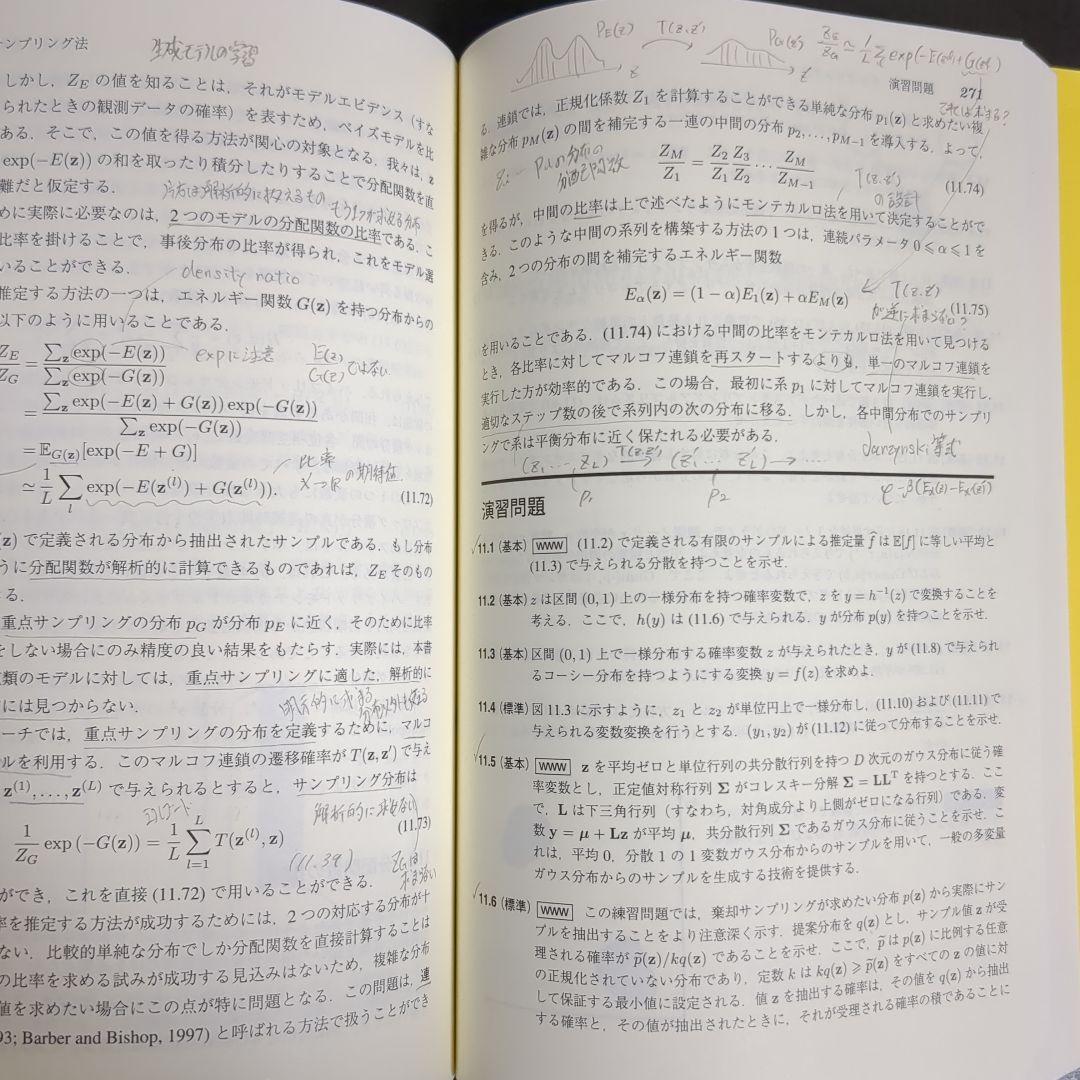 ンプリング法
生成モデルの学習
しかし，Z_E の値を知ることは，それがモデルエビデンス（すな
られたときの観測データの確率）を表すため，ベイズモデルを比
ある．そこで，この値を得る方法が関心の対象となる．我々は，z
exp(−E(z)) の和を取ったり積分したりすることで分配関数を直
難だと仮定する．
めに実際に必要なのは，2つのモデルの分配関数の比率である．こ
比率を掛けることで，事後分布の比率が得られ，これをモデル選
いることができる．
density ratio
推定する方法の一つは，エネルギー関数 G(z) を持つ分布からの
以下のように用いることである．
Z_E/Z_G = Σ_z exp(−E(z)) / Σ_z exp(−G(z))
expに注意
E(z)
G(z) ではない
= Σ_z exp(−E(z) + G(z)) exp(−G(z)) / Σ_z exp(−G(z))
= 𝔼_{G(z)}[exp(−E + G)]
比率
の期待値
≃ 1/L Σ_l exp(−E(z^(l)) + G(z^(l))). (11.72)
z) で定義される分布から抽出されたサンプルである．もし分布
うに分配関数が解析的に計算できるものであれば，Z_E そのもの
る．
重点サンプリングの分布 p_G が分布 p_E に近く，そのために比率
をしない場合にのみ精度の良い結果をもたらす．実際には，本書
類のモデルに対しては，重点サンプリングに適した，解析的に
には見つからない．
ーチでは，重点サンプリングの分布を定義するために，マルコ
ルを利用する．このマルコフ連鎖の遷移確率が T(z, z′) で与え
z^(1), . . . , z^(L) で与えられるとすると，サンプリング分布は
解析的に求めない
(11.73)
1/Z_G exp (−G(z)) = 1/L Σ_{l=1}^{L} T(z^(l), z)
(11.39)
ができ，これを直接 (11.72) で用いることができる．
率を推定する方法が成功するためには，2つの対応する分布が十
ない．比較的単純な分布でしか分配関数を直接計算することは
の比率を求める試みが成功する見込みはないため，複雑な分布
値を求めたい場合にこの点が特に問題となる．この問題は，連
93; Barber and Bishop, 1997) と呼ばれる方法で扱うことができ
P_E(z) T(z,z′) P_G(z′) Z_E/Z_G ≃ 1/L Σ exp(−E(z)+G(z))
演習問題 271
る．連鎖では，正規化係数 Z_1 を計算することができる単純な分布 p_1(z) と求めたい複
雑な分布 p_M(z) の間を補完する一連の中間の分布 p_2, . . . , p_{M−1} を導入する．よって，
Z_M/Z_1 = Z_2/Z_1 Z_3/Z_2 . . . Z_M/Z_{M−1} (11.74)
T(z,z′)
の設計
を得るが，中間の比率は上で述べたようにモンテカルロ法を用いて決定することがで
きる．このような中間の系列を構築する方法の1つは，連続パラメータ 0 ⩽ α ⩽ 1 を
含み，2つの分布の間を補完するエネルギー関数
E_α(z) = (1 − α)E_1(z) + αE_M(z) (11.75)
T(z,z′)
を用いることである．(11.74) における中間の比率をモンテカルロ法を用いて見つける
とき，各比率に対してマルコフ連鎖を再スタートするよりも，単一のマルコフ連鎖を
実行した方が効率的である．この場合，最初に系 p_1 に対してマルコフ連鎖を実行し，
適切なステップ数の後で系列内の次の分布に移る．しかし，各中間分布でのサンプリ
ングで系は平衡分布に近く保たれる必要がある．
Jarzynski 等式
(z_1 ..., z_L) T(z,z′) → (z′_1 ... z′_L) →
p_1 p_2
演習問題
11.1 (基本) www (11.2) で定義される有限のサンプルによる推定量 f̂ は 𝔼[f] に等しい平均と
(11.3) で与えられる分散を持つことを示せ．
11.2 (基本) z は区間 (0, 1) 上の一様分布を持つ確率変数で，z を y = h⁻¹(z) で変換することを
考える．ここで，h(y) は (11.6) で与えられる．y が分布 p(y) を持つことを示せ．
11.3 (基本) 区間 (0, 1) 上で一様分布する確率変数 z が与えられたとき，y が (11.8) で与えられ
るコーシー分布を持つようにする変換 y = f(z) を求めよ．
11.4 (標準) 図 11.3 に示すように，z_1 と z_2 が単位円上で一様分布し，(11.10) および (11.11) で
与えられる変数変換を行うとする．(y_1, y_2) が (11.12) に従って分布することを示せ．
11.5 (基本) www z を平均ゼロと単位行列の共分散行列を持つ D 次元のガウス分布に従う確
率変数とし，正定値対称行列 Σ がコレスキー分解 Σ = LL^T を持つとする．ここ
で，L は下三角行列（すなわち，対角成分より上側がゼロになる行列）である．変
数 y = μ + Lz が平均 μ，共分散行列 Σ であるガウス分布に従うことを示せ．こ
れは，平均 0，分散 1 の 1 変数ガウス分布からのサンプルを用いて，一般の多変量
ガウス分布からのサンプルを生成する技術を提供する．
11.6 (標準) www この練習問題では，棄却サンプリングが求めたい分布 p(z) から実際にサン
プルを抽出することをより注意深く示す．提案分布を q(z) とし，サンプル値 z が受
理される確率が p̃(z)/kq(z) であることを示せ．ここで，p̃ は p(z) に比例する任意
の正規化されていない分布であり，定数 k は kq(z) ⩾ p̃(z) をすべての z の値に対
して保証する最小値に設定される．値 z を抽出する確率は，その値を q(z) から抽出
する確率と，その値が抽出されたときに，それが受理される確率の積であることに